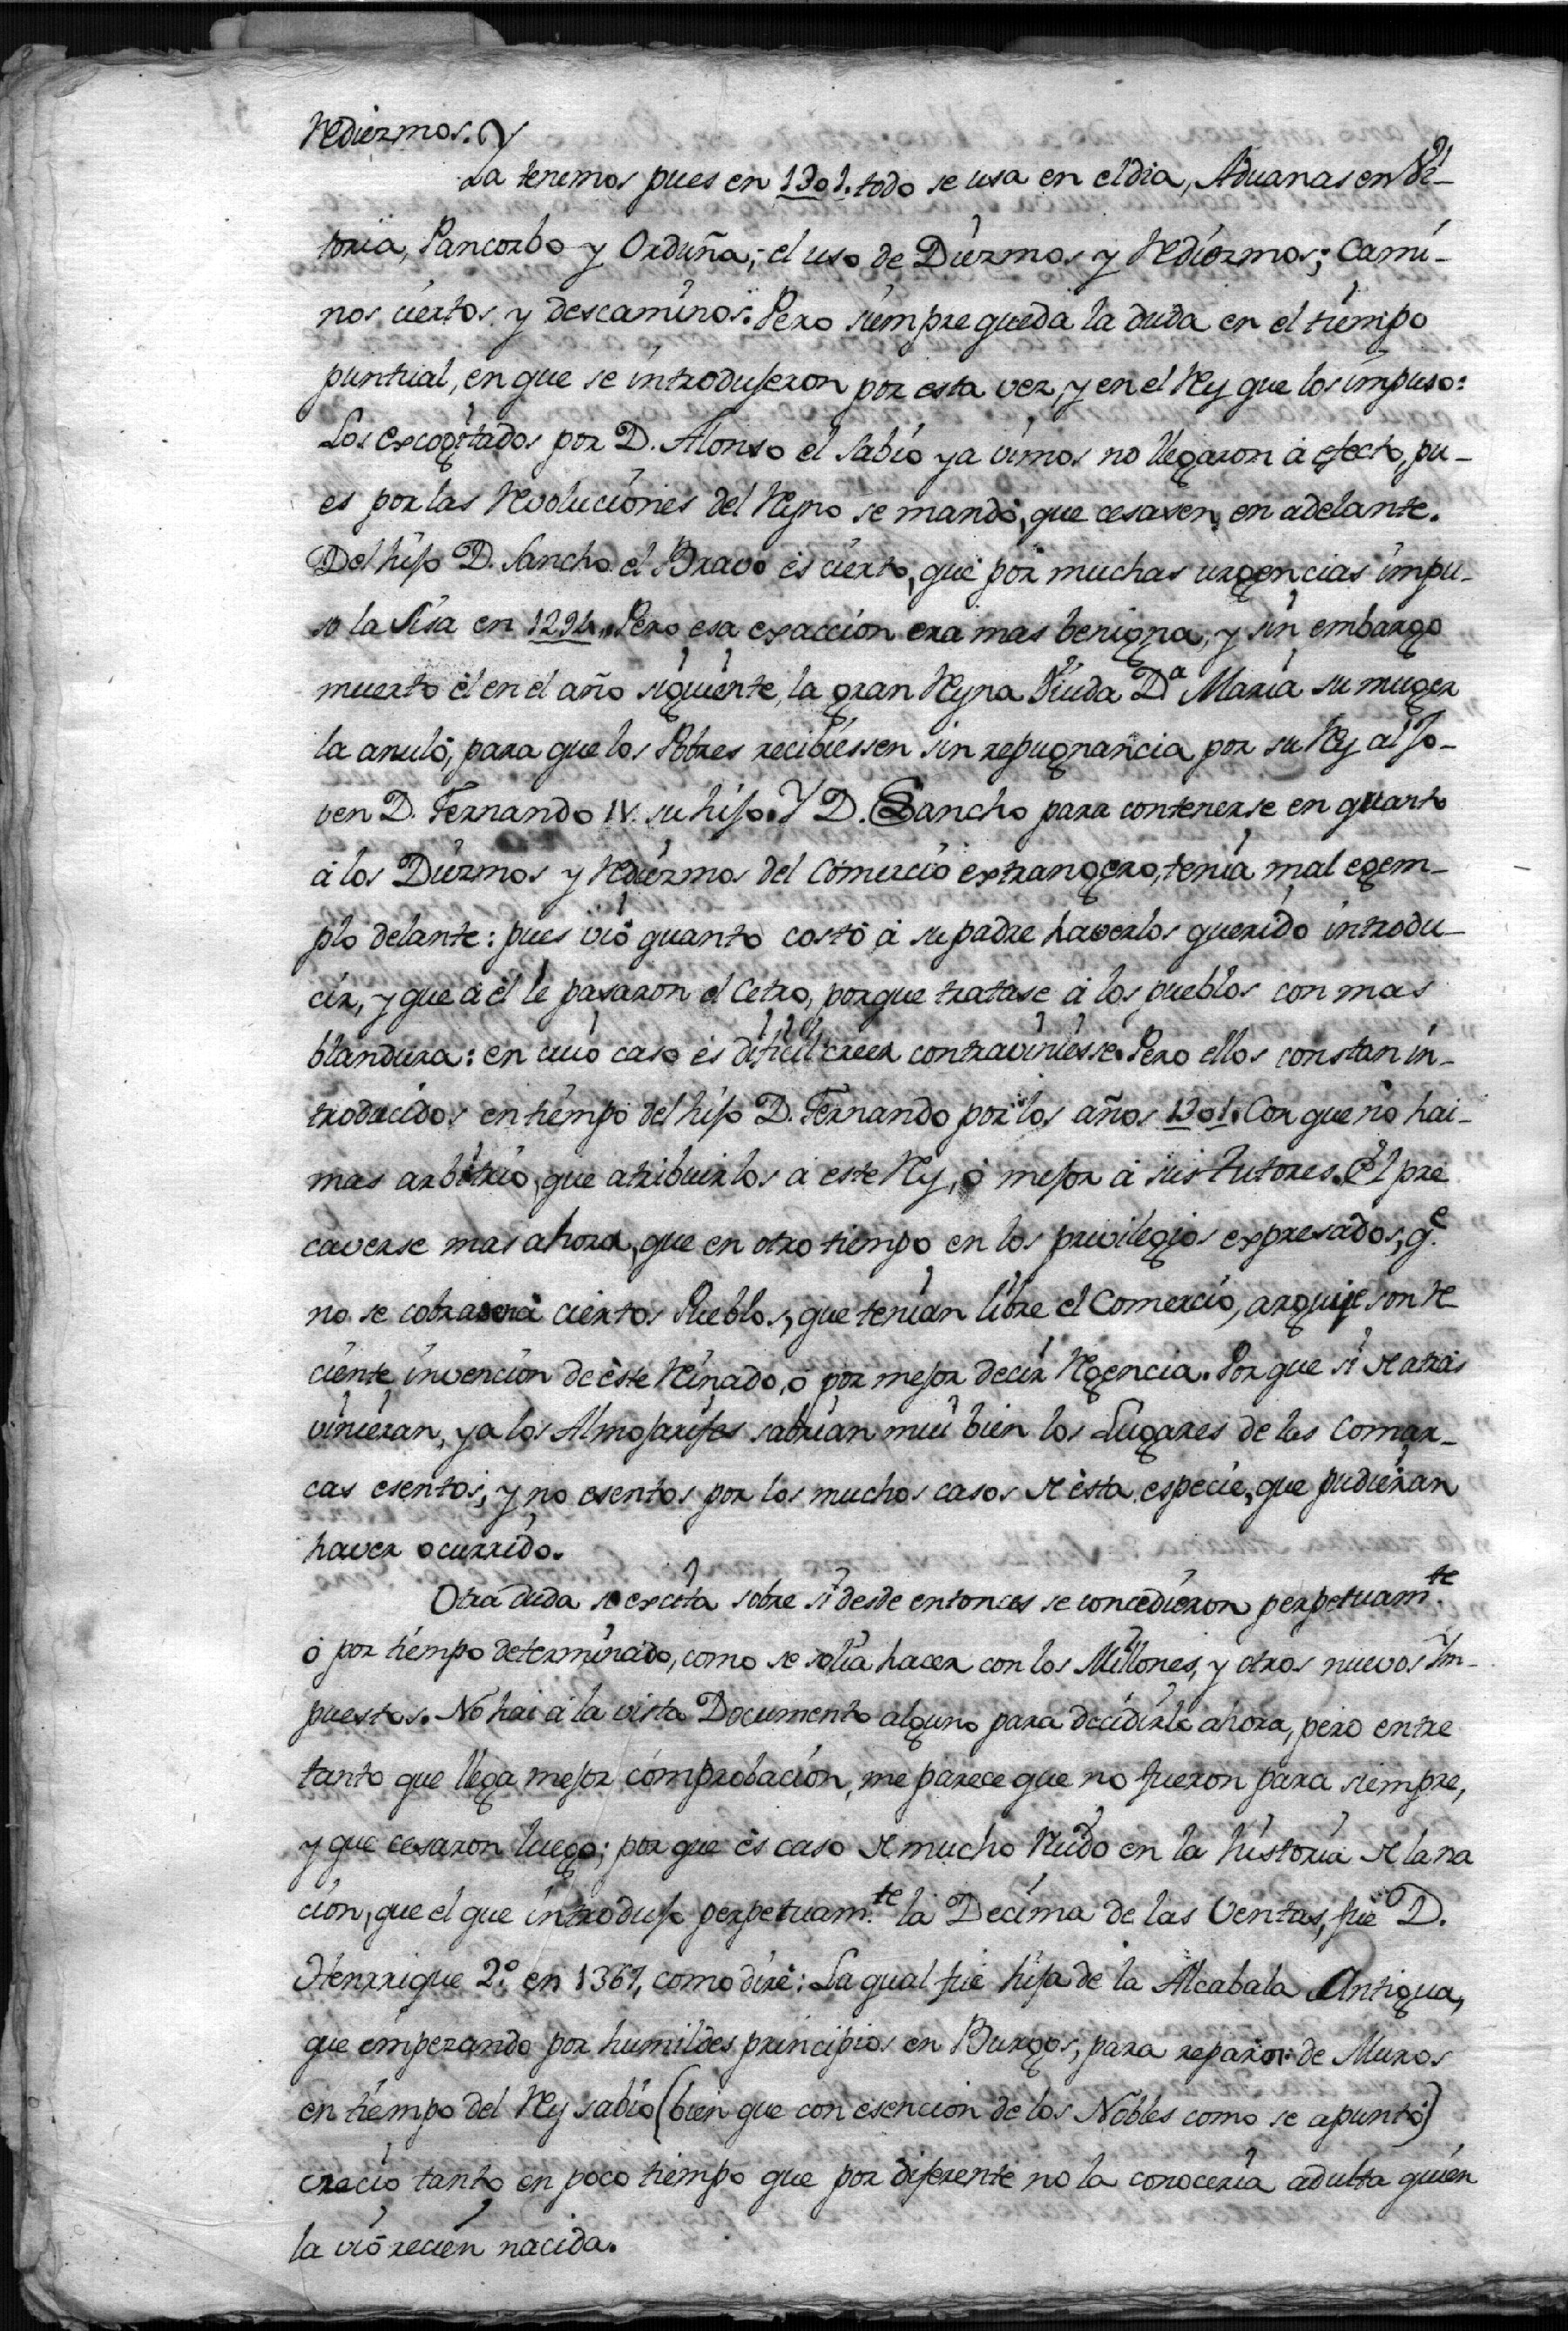 Rediezmos. Y
Ya tenemos pues en 1301. todo se usa en el dia, Aduanas en Vi-
toria, Pancorbo y Orduña; el uso de Diezmos y Rediezmos; Cami-
nos ciertos y descaminos. Pero siempre queda la duda en el tiempo
puntual, en que se introdujeron por esta vez, y en el Rey que los impuso:
Los excogitados por D. Alonso el Sabio ya vimos no llegaron á efecto, pu-
es por las Revoluciones del Reyno se mandó, que cesasen en adelante.
Del hijo D. Sancho el Bravo és cierto, que por muchas urgencias impu-
so la Sisa en 1294. Pero esa exacción era mas benigna, y sin embargo
muerto él en el año siguiente, la gran Reyna Viuda Dª Maria su muger
la anuló, para que los Pobres recibiessen sin repugnancia por su Rey al Jo-
ven D. Fernando IV. su hijo. Y D. Sancho para contenerse en quanto
á los Diezmos y Rediezmos del Comercio extrangero, tenia mal egem-
plo delante: pues vió quanto costó á su padre haverlos querido introdu-
cir, y que á él le pasaron el Cetro, porque tratase á los pueblos con mas
blandura: en cuio caso és dificil creer contraviniesse. Pero ellos constan in-
troducidos en tiempo del hijo D. Fernando por los años 1301. Con que no hai-
mas arbitrio, que atribuirlos á este Rey, ó mejor á sus Tutores. El pre
caverse mas ahora, que en otro tiempo en los privilegios expresados, q.e
no se cobrasen á ciertos Pueblos, que tenian libre el Comercio, arguye son re
ciente invencion de éste Reinado, ó por mejor decir Regencia. Por que si de atrás
vinieran, ya los Almojarifes sabrian mui bien los Lugares de las Comar-
cas esentos, y no esentos por los muchos casos de ésta especie, que pudieran
haver ocurrido.
Otra duda se excita sobre si desde entonces se concedieron perpetuam.te
ó por tiempo determinado, como se solia hacer con los Millones, y otros nuevos Im-
puestos. No hai á la vista Documento alguno para decidirlo ahora, pero entre
tanto que llega mejor comprobacion, me parece que no fueron para siempre,
y que cesaron luego; por que és caso de mucho Ruido en la historia de la na
cion, que el que introdujo perpetuam.te la Decima de las Ventas, fue D.
Henrrique 2.º en 1367, como diré: La qual fué hija de la Alcabala Antigua,
que empezando por humildes principios en Burgos, para reparar de Muros
en tiempo del Rey sabio (bien que con esencion de los Nobles como se apuntó)
creció tanto en poco tiempo que por diferente no la conoceria adulta quien
la vió recien nacida.